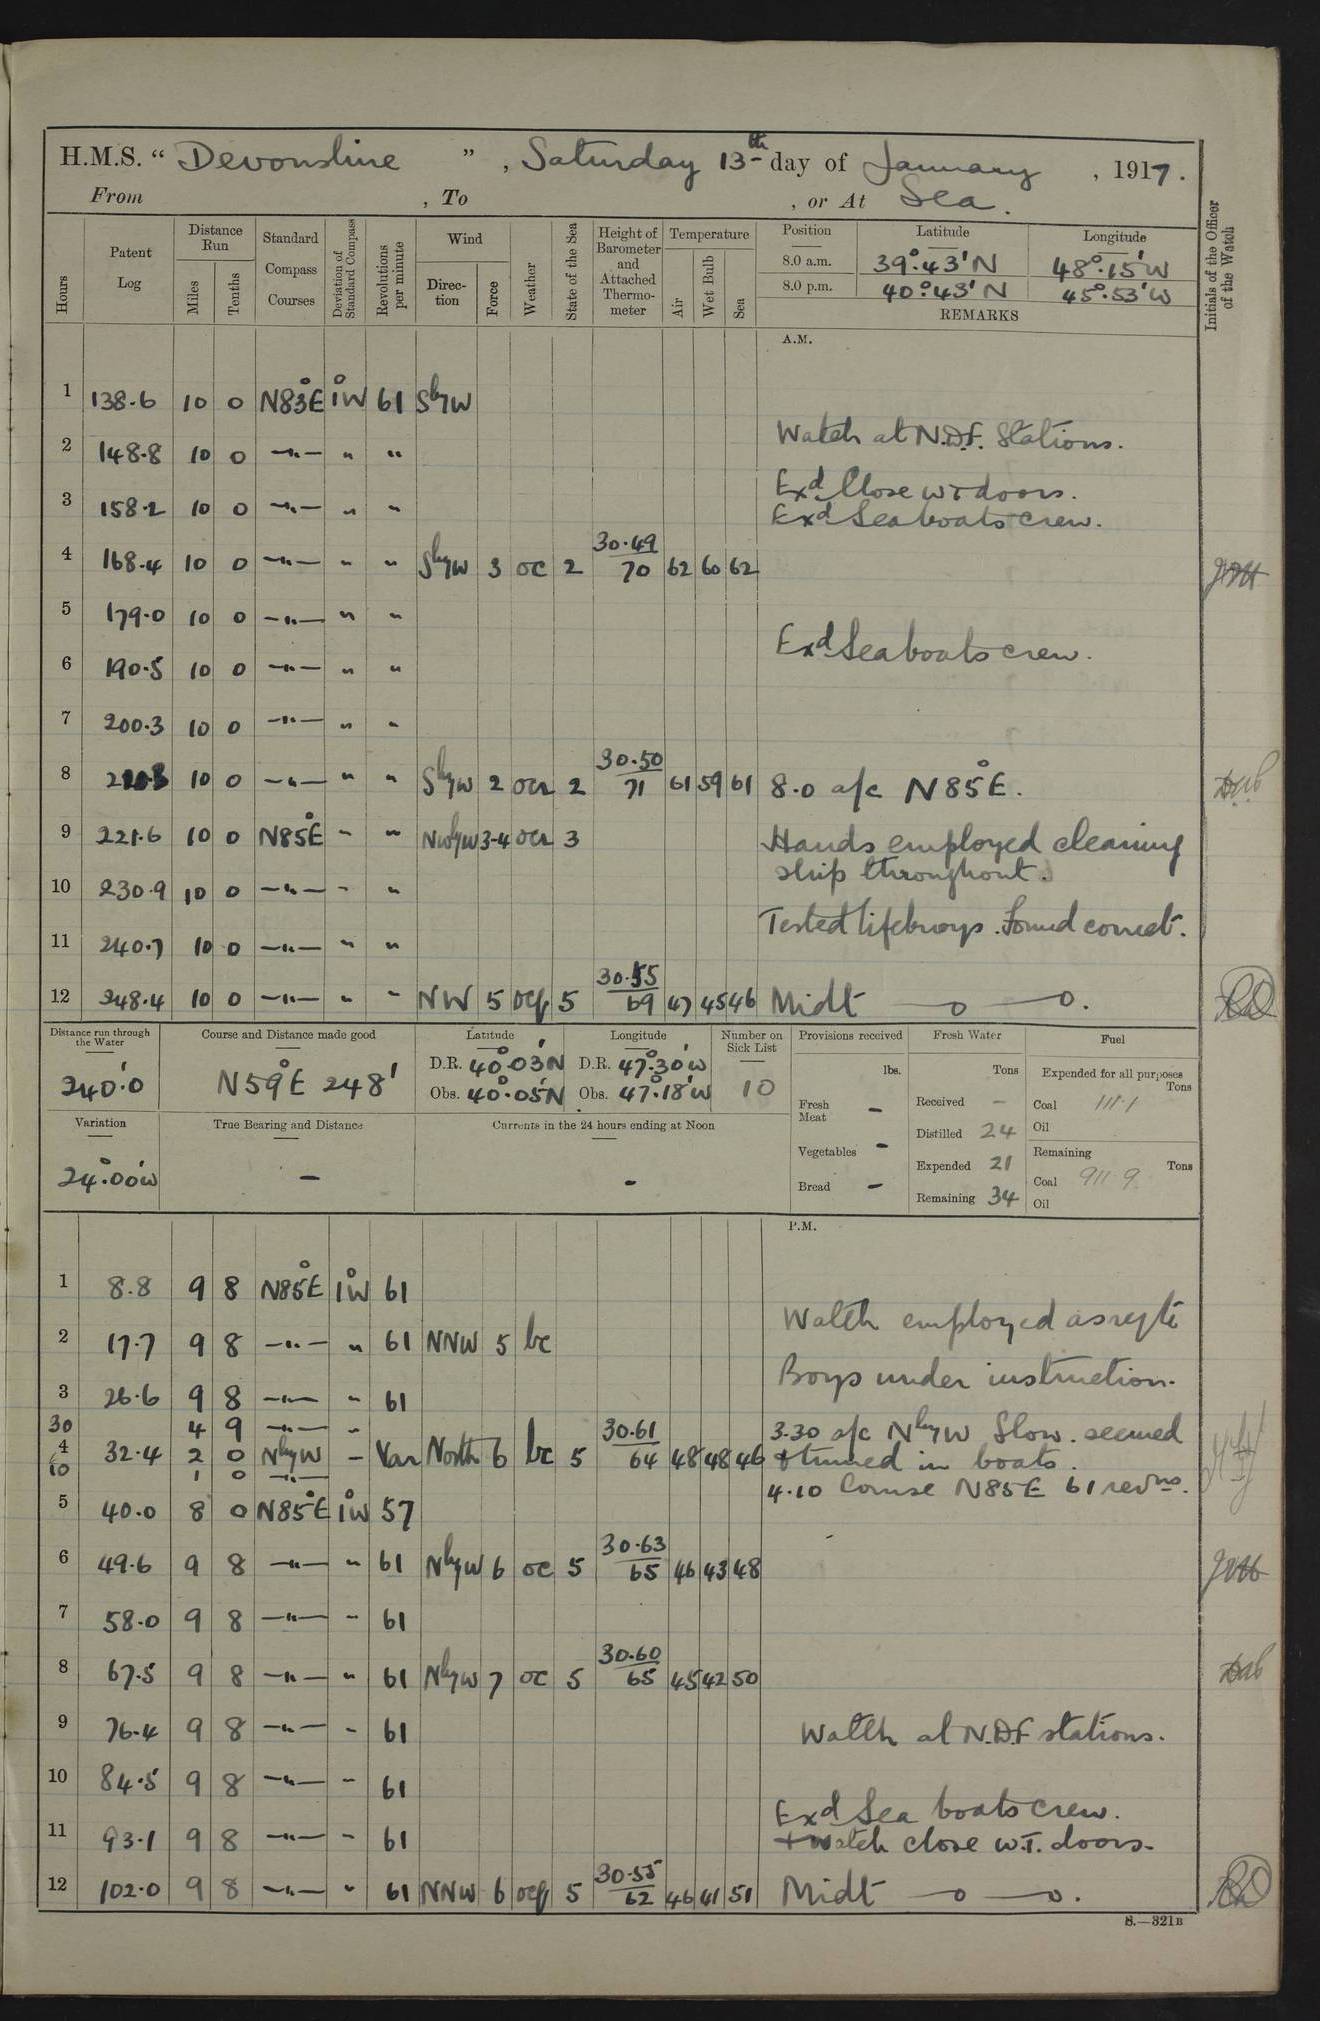 H.M.S. “ Devonshire ” , Saturday 13th day of January , 1917.
From , To , or At Sea.
Hours
Patent Log
Distance Run
Miles
Tenths
Standard Compass Courses
Deviation of Standard Compass
Revolutions per minute
Wind
Direc-tion
Force
Weather
State of the Sea
Height of Barometer and Attached Thermo-meter
Temperature
Air
Wet Bulb
Sea
Position Latitude Longitude
8.0 a.m. 39°.43'N 48°.15'W
8.0 p.m. 40°.43'N 45°.53'W
REMARKS
Initials of the Officer of the Watch
A.M.
1 138.6 10 0 N83°E 1°W 61 SbyW
Watch at N.D.F. Stations.
2 148.8 10 0 —"— " "
Exd Close W.T doors.
3 158.2 10 0 —"— " "
Exd Seaboats crew.
30.49
4 168.4 10 0 —"— " " SbyW 3 oc 2 70 62 60 62
5 179.0 10 0 —"— " "
Exd Seaboats crew.
6 190.5 10 0 —"— " "
7 200.3 10 0 —"— " "
30.50
8 10 0 —"— " " SbyW 2 ocr 2 71 61 59 61 8.0 a/c N85°E.
9 221.6 10 0 N85°E " " NWbyW 3-4 ocr 3 Hands employed cleaning
ship throughout.
10 230.9 10 0 —"— " "
Tested lifebuoys. Found correct.
11 240.7 10 0 —"— " "
30.55
12 248.4 10 0 —"— " " NW 5 ocq 5 69 47 45 46 Midt —o —o.
Distance run through the Water
240'.0
Course and Distance made good
N59°E 248'
Latitude
D.R. 40°.03'N
Obs. 40°.05'N
Longitude
D.R. 47°.30'W
Obs. 47°.18'W
Number on Sick List
10
Provisions received
lbs.
Fresh Meat -
Vegetables -
Bread -
Fresh Water
Tons
Received -
Distilled 24
Expended 21
Remaining 34
Fuel
Expended for all purposes
Tons
Coal 111.1
Oil
Remaining
Tons
Coal 911.9
Oil
Variation
24°.00'W
True Bearing and Distance
-
Currents in the 24 hours ending at Noon
-
P.M.
1 8.8 9 8 N85°E 1°W 61
Watch employed as reqte
2 17.7 9 8 —"— " 61 NNW 5 bc
Boys under instruction.
3 26.6 9 8 —"— " 61
30 4 9 —"— " 30.61 3.30 a/c NbyW Slow. secured
4 32.4 2 0 NbyW - Var North 6 bc 5 64 48 48 46 & turned in boats.
10 1 0 —"— 4.10 Course N85E 61 revns.
5 40.0 8 0 N85°E 1°W 57
30.63
6 49.6 9 8 —"— " 61 NbyW 6 oc 5 65 46 43 48
7 58.0 9 8 —"— " 61
30.60
8 67.5 9 8 —"— " 61 NbyW 7 oc 5 65 45 42 50
9 76.4 9 8 —"— " 61 Watch at N.D.F stations.
10 84.5 9 8 —"— " 61
Exd Sea boats crew.
11 93.1 9 8 —"— " 61 + watch close W.T. doors.
30.55
12 102.0 9 8 —"— " 61 NNW 6 ocq 5 62 46 41 51 Midt —o —o.
S.—321B